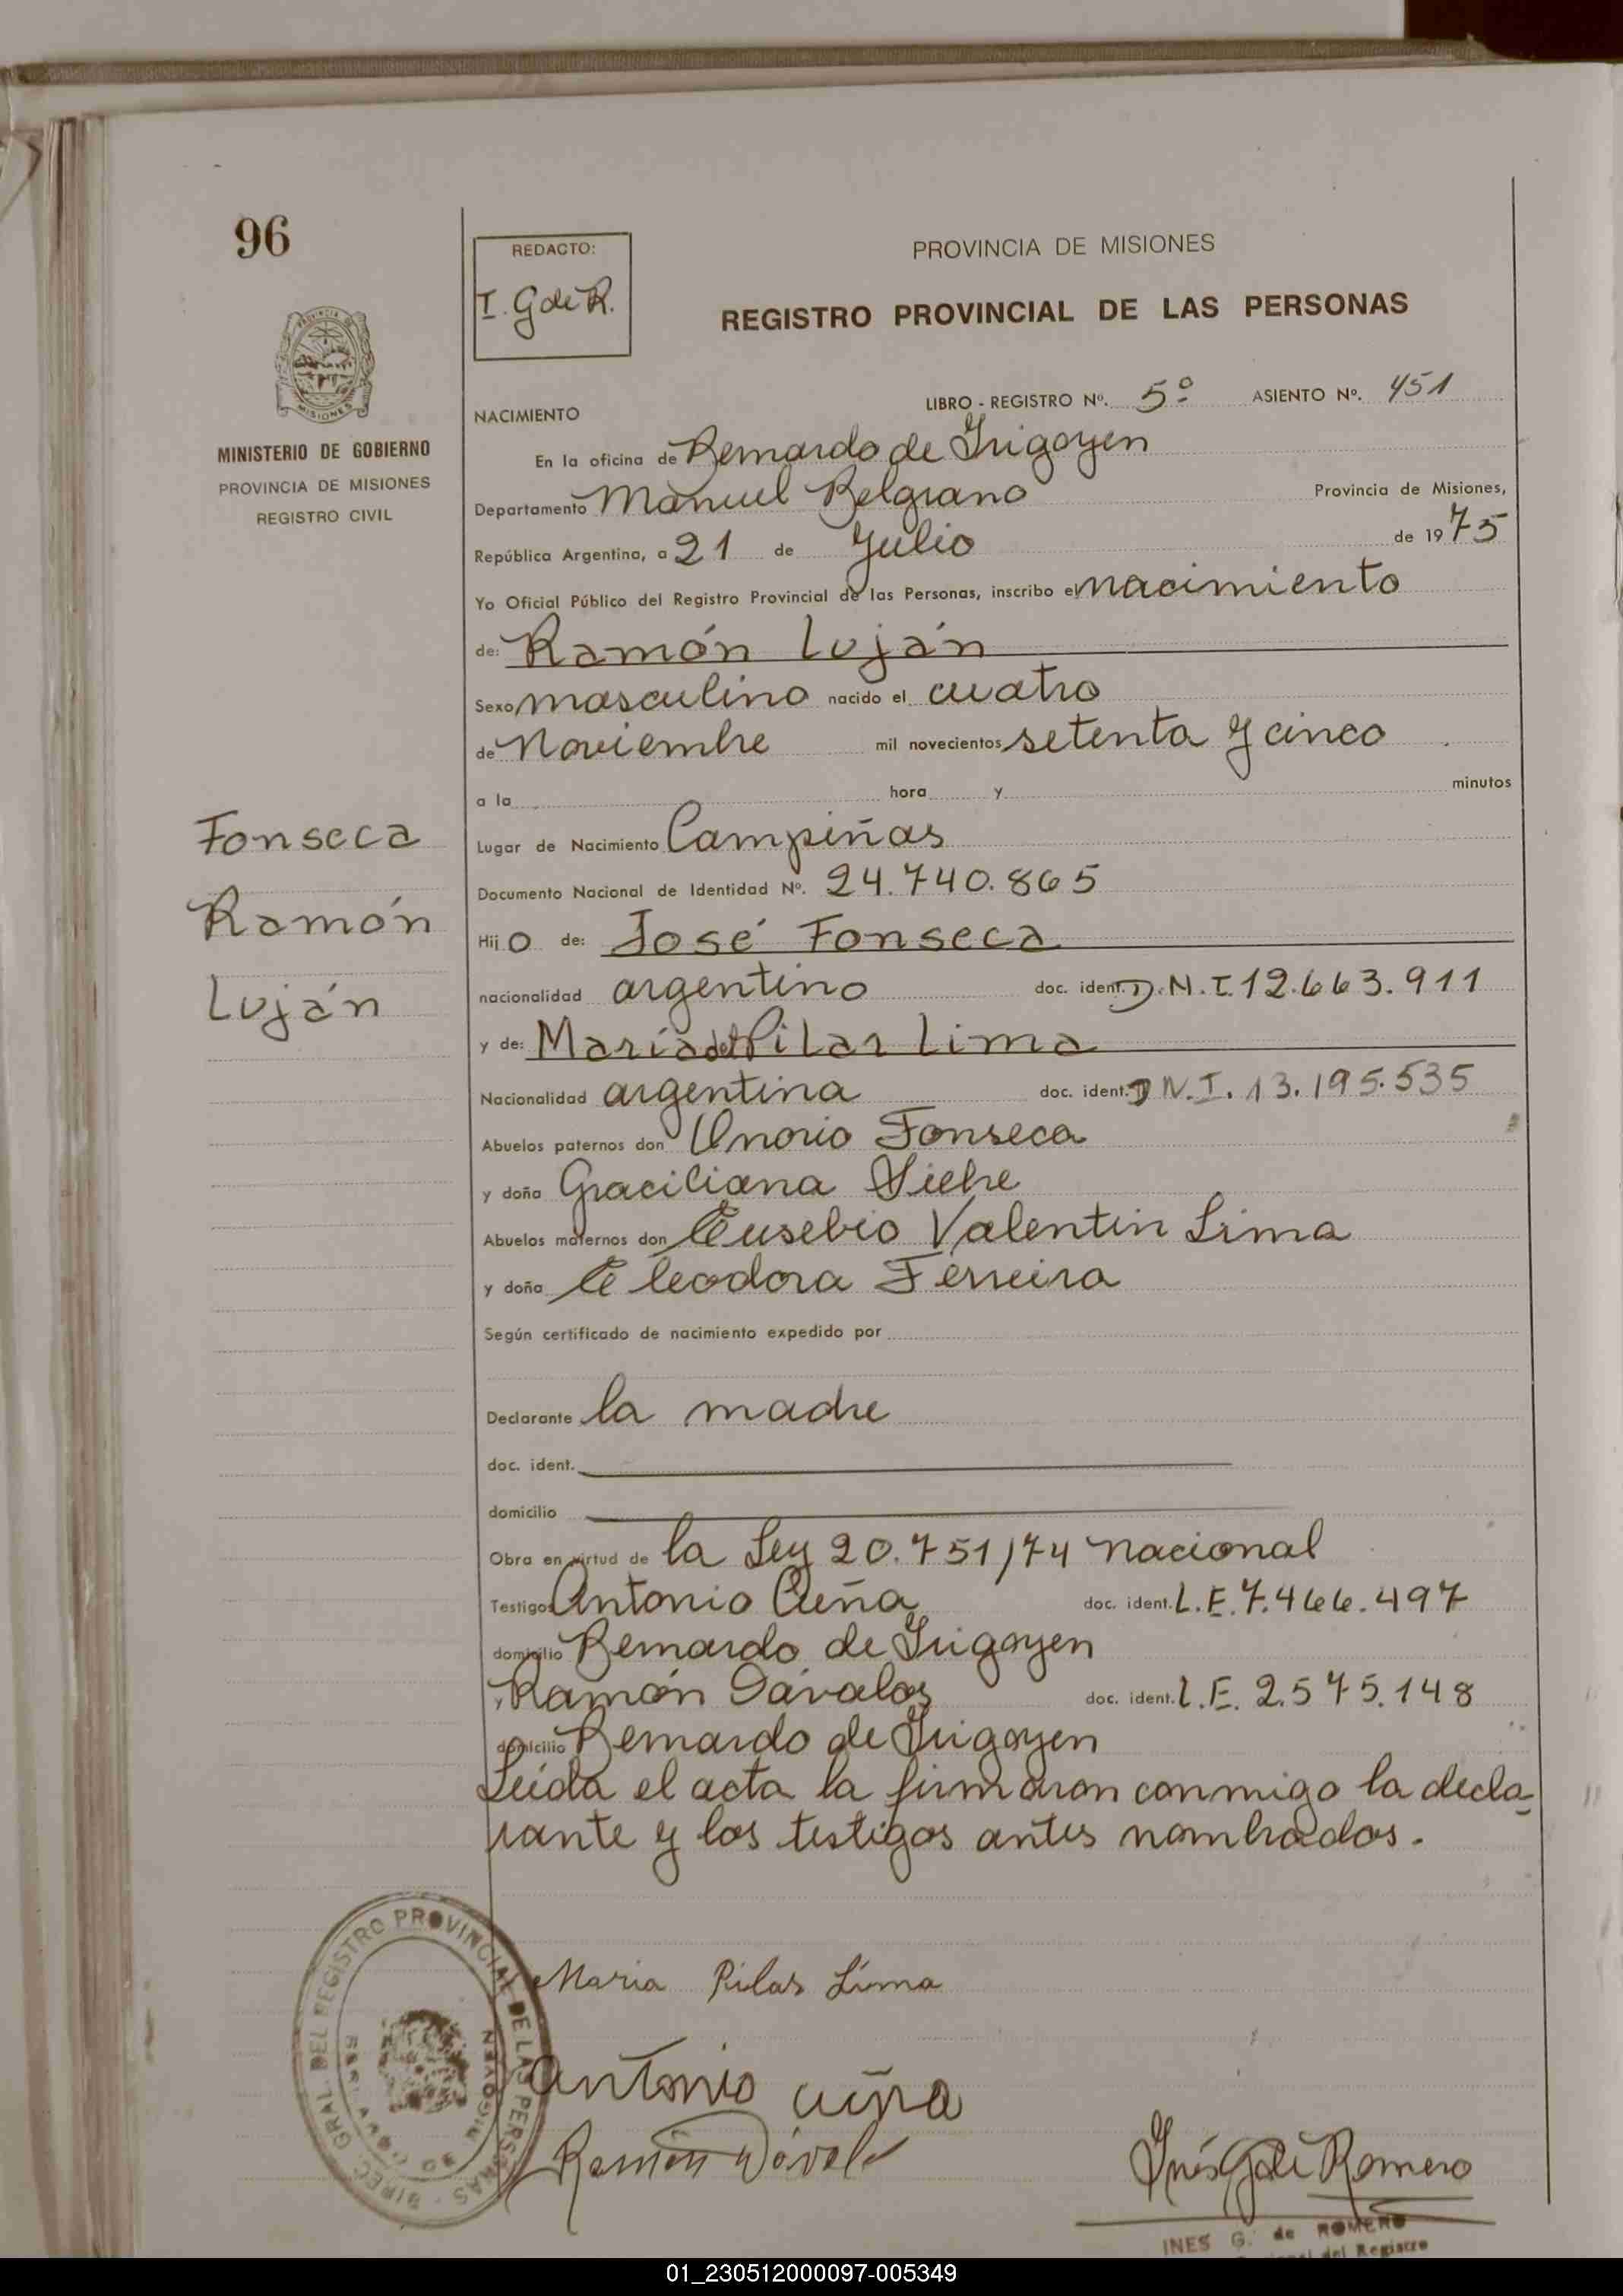 96
REDACTO:
I. G de R.
PROVINCIA DE MISIONES
REGISTRO PROVINCIAL DE LAS PERSONAS
MINISTERIO DE GOBIERNO
PROVINCIA DE MISIONES
REGISTRO CIVIL
NACIMIENTO
LIBRO - REGISTRO Nº. 5º ASIENTO Nº. 451
En la oficina de Bernardo de Irigoyen
Departamento Manuel Belgrano Provincia de Misiones,
República Argentina, a 21 de Julio de 1975
Yo Oficial Público del Registro Provincial de las Personas, inscribo el nacimiento
de: Ramón Luján
Sexo masculino nacido el cuatro
de Noviembre mil novecientos setenta y cinco
a la hora y minutos
Lugar de Nacimiento Campiñas
Documento Nacional de Identidad Nº. 24.740.865
Hijo de: José Fonseca
nacionalidad argentino doc. ident. D.N.I. 12.663.911
y de: María del Pilar Lima
Nacionalidad argentina doc. ident. D N.I. 13.195.535
Abuelos paternos don Onorio Fonseca
y doña Graciliana
Abuelos maternos don Eusebio Valentin Lima
y doña Eleodora Ferreira
Según certificado de nacimiento expedido por
Declarante la madre
doc. ident.
domicilio
Obra en virtud de la Ley 20.751/74 nacional
Testigos Antonio Cuña doc. ident. L.E. 7.466.497
domicilio Bernardo de Irigoyen
Ramón Dávalos doc. ident. L.E. 2.575.148
domicilio Bernardo de Irigoyen
Leída el acta la firmaron conmigo la decla-
rante y los testigos antes nombrados.
Fonseca
Ramón
Luján
Maria Pilar Lima
Antonio cuña
Ramón Dávalo
Inés G de Romero
INES G. de ROMERO
del Registro
DIREC. GRAL. DEL REGISTRO PROVINCIAL DE LAS PERSONAS
BERNARDO DE IRIGOYEN
01_230512000097-005349